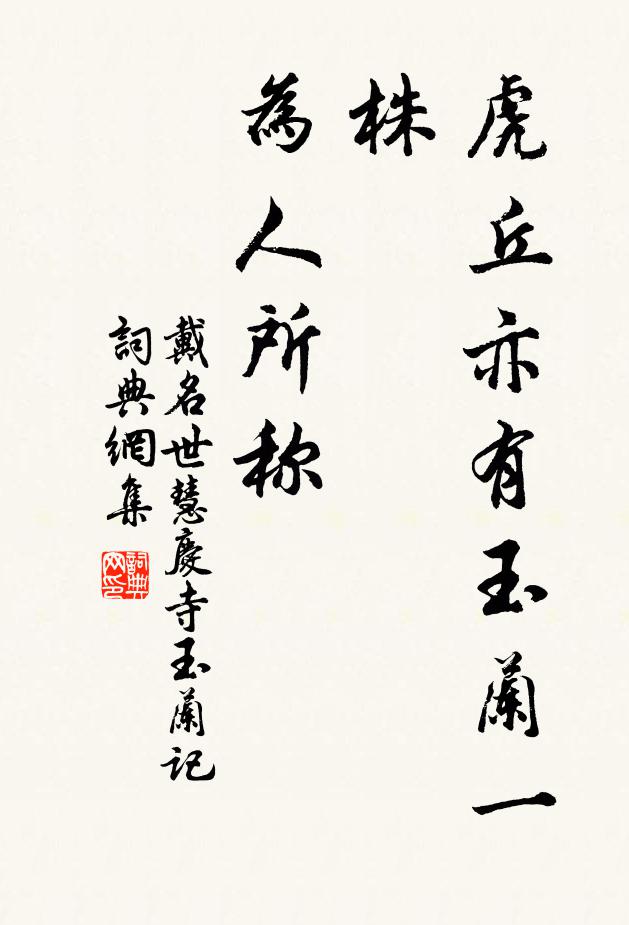 虎丘亦有玉蘭一
株
為人所称
戴名世慧慶寺玉蘭記
詞典網集
詞典
网印